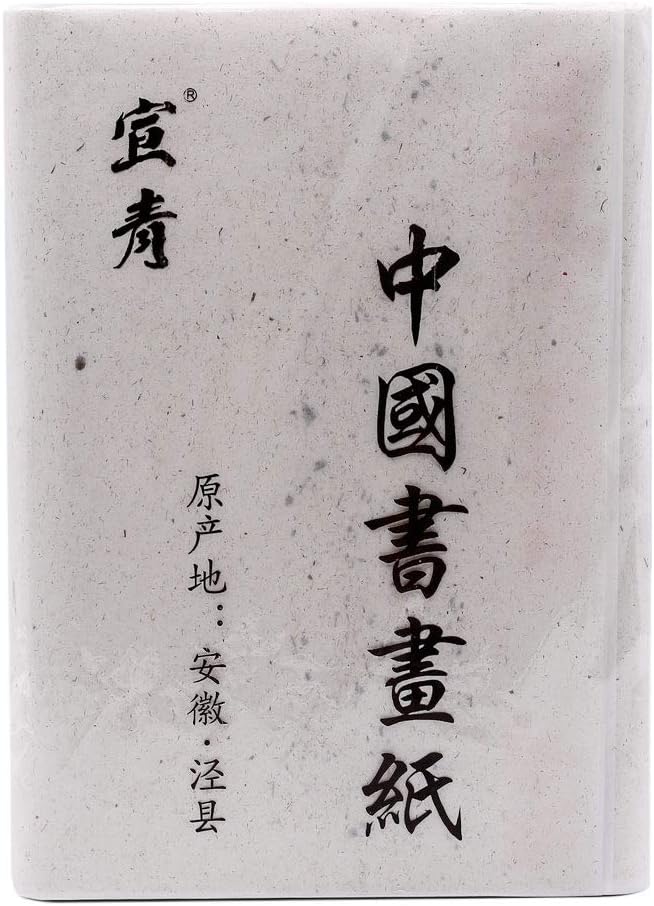 中國書畫紙
宣青®
原产地：安徽·泾县